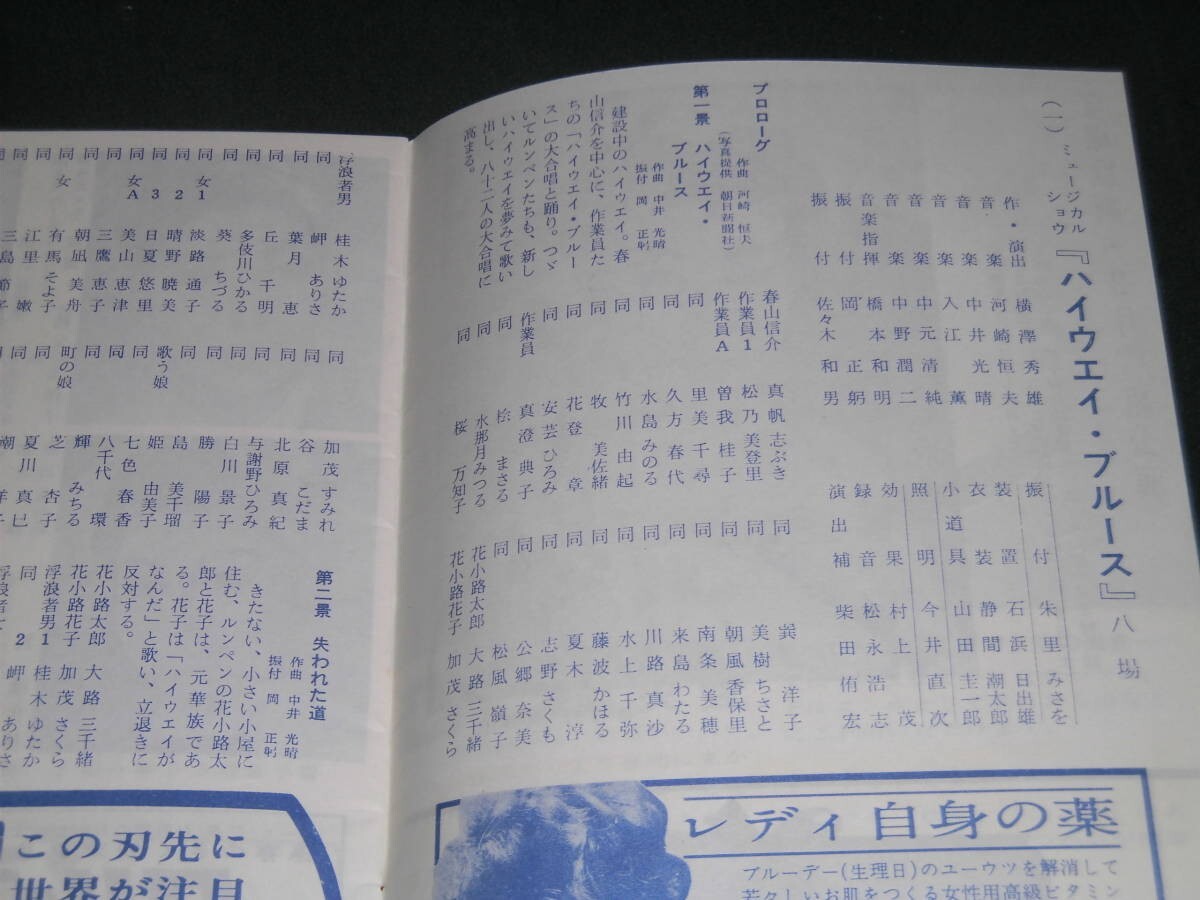 (一) ミュージカルショウ『ハイウエイ・ブルース』八場
作・演出 横澤秀雄
音楽 河崎恒夫
音楽 中井光晴
音楽 入江薫
音楽 中元清純
音楽 中野潤二
音楽指揮 橋本和明
振付 岡正躬
振付 佐々木和男
振付 朱里みさを
装置 石浜日出雄
衣装 静間潮太郎
小道具 山田圭一郎
照明 今井直次
効果 村上茂
録音 松永浩志
演出補 柴田侑宏
プロローグ
作曲 河崎恒夫
(写真提供 朝日新聞社)
第一景 ハイウエイ・
ブルース
作曲 中井光晴
振付 岡正躬
建設中のハイウエイ。春
山信介を中心に、作業員た
ちの「ハイウエイ・ブルー
ス」の大合唱と踊り。つゞ
いてルンペンたちも、新し
いハイウエイを夢みて歌い
出し、八十二人の大合唱に
高まる。
春山信介 真帆志ぶき
作業員1 松乃美登里
作業員A 曽我桂子
同 里美千尋
同 久方春代
同 水島みのる
同 竹川由起
同 牧美佐緒
同 花登章
同 安芸ひろみ
作業員 真澄典子
同 桧まさる
同 水那月みつる
同 桜万知子
同 巽洋子
同 美樹ちさと
同 朝風香保里
同 南条美穂
同 来島わたる
同 川路真沙
同 水上千弥
同 藤波かほる
同 夏木淳
同 志野さくも
同 公郷奈美
同 松風嶺子
花小路太郎 大路三千緒
花小路花子 加茂さくら
レディ自身の薬
ブルーデー(生理日)のユーウツを解消して
若々しいお肌をつくる女性用高級ビタミン
浮浪者男 桂木ゆたか
同 岬ありさ
同 葉月恵
同 丘千明
同 多伎川ひかる
同 葵ちづる
女1 淡路通子
同2 晴野暁美
同3 日夏悠里
女A 美山恵津
同 三鷹恵子
同 朝凪美舟
女 有馬そよ子
同 江里嫩
同 三島節子
同 加茂すみれ
同 谷こだま
同 北原真紀
同 与謝野ひろみ
同 白川景子
同 勝陽子
同 島美千瑠
歌う娘 姫由美子
同 七色春香
同 八千代環
同 輝みちる
町の娘 芝杏子
同 夏川真巳
同 潮洋子
第二景 失われた道
作曲 中井光晴
振付 岡正躬
きたない、小さい小屋に
住む、ルンペンの花小路太
郎と花子は、元華族であ
る。花子は「ハイウエイが
なんだ」と歌い、立退きに
反対する。
花小路太郎 大路三千緒
花小路花子 加茂さくら
浮浪者男1 桂木ゆたか
同 2 岬ありさ
この刃先に
世界が注目